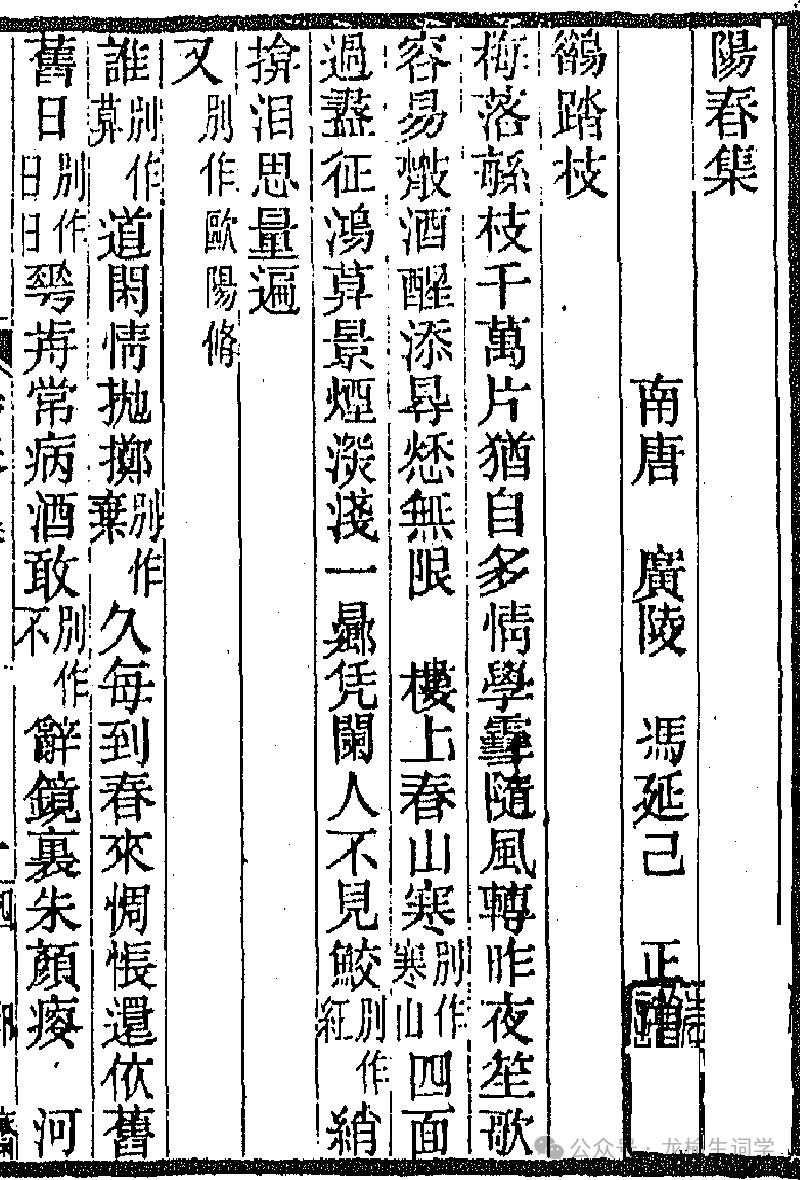 陽春集
南唐 廣陵 馮延己 正
鵲踏枝
梅落繁枝千萬片猶自多情學雪隨風轉昨夜笙歌
容易散酒醒添得愁無限 樓上春山寒別作寒山四面
過盡征鴻莫景煙深淺一晌凭闌人不見鮫別作紅綃
揜泪思量遍
又 別作歐陽脩
誰別作莫道閑情拋擲別作棄久每到春來惆悵還依舊
舊日別作日日花前常病酒敢別作不辭鏡裏朱顏瘦 河
公众号 · 龙榆生词学